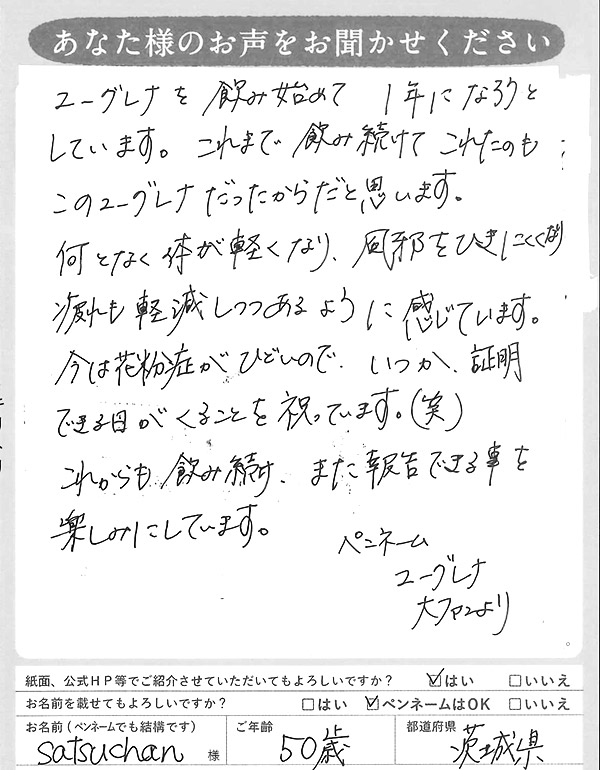 あなた様のお声をお聞かせください
ユーグレナを飲み始めて 1年になろうと
しています。これまで飲み続けてこれたのも
このユーグレナだったからだと思います。
何となく体が軽くなり、風邪をひきにくくなり
疲れも軽減しつつあるように感じています。
今は花粉症がひどいので、いつか、証明
できる日がくることを祝っています。(笑)
これからも飲み続け、また報告できる事を
楽しみにしています。
ペンネーム
ユーグレナ
大ファンより
紙面、公式HP等でご紹介させていただいてもよろしいですか? ☑はい □いいえ
お名前を載せてもよろしいですか? □はい ☑ペンネームはOK □いいえ
お名前(ペンネームでも結構です) ご年齢 都道府県
satsuchan 様 50歳 茨城県